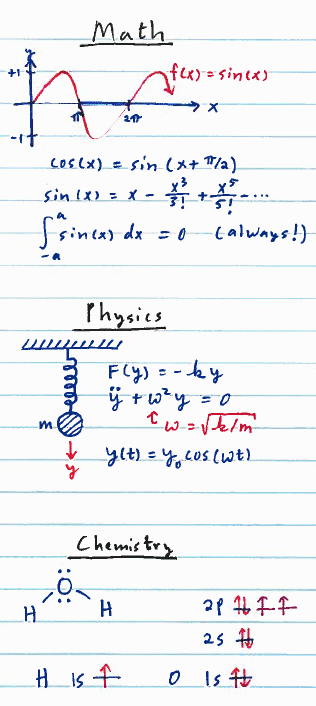 Math
+1
f(x) = sin(x)
π 2π x
-1
cos(x) = sin (x + π/2)
sin(x) = x - x³/3! + x⁵/5! - ...
∫₋ₐᵃ sin(x) dx = 0 (always!)
Physics
F(y) = -ky
ÿ + ω²y = 0
m ↑ ω = √k/m
y y(t) = y₀ cos(ωt)
Chemistry
O
H H 2p ⇅ ↑ ↑
2s ⇅
H 1s ↑ O 1s ⇅